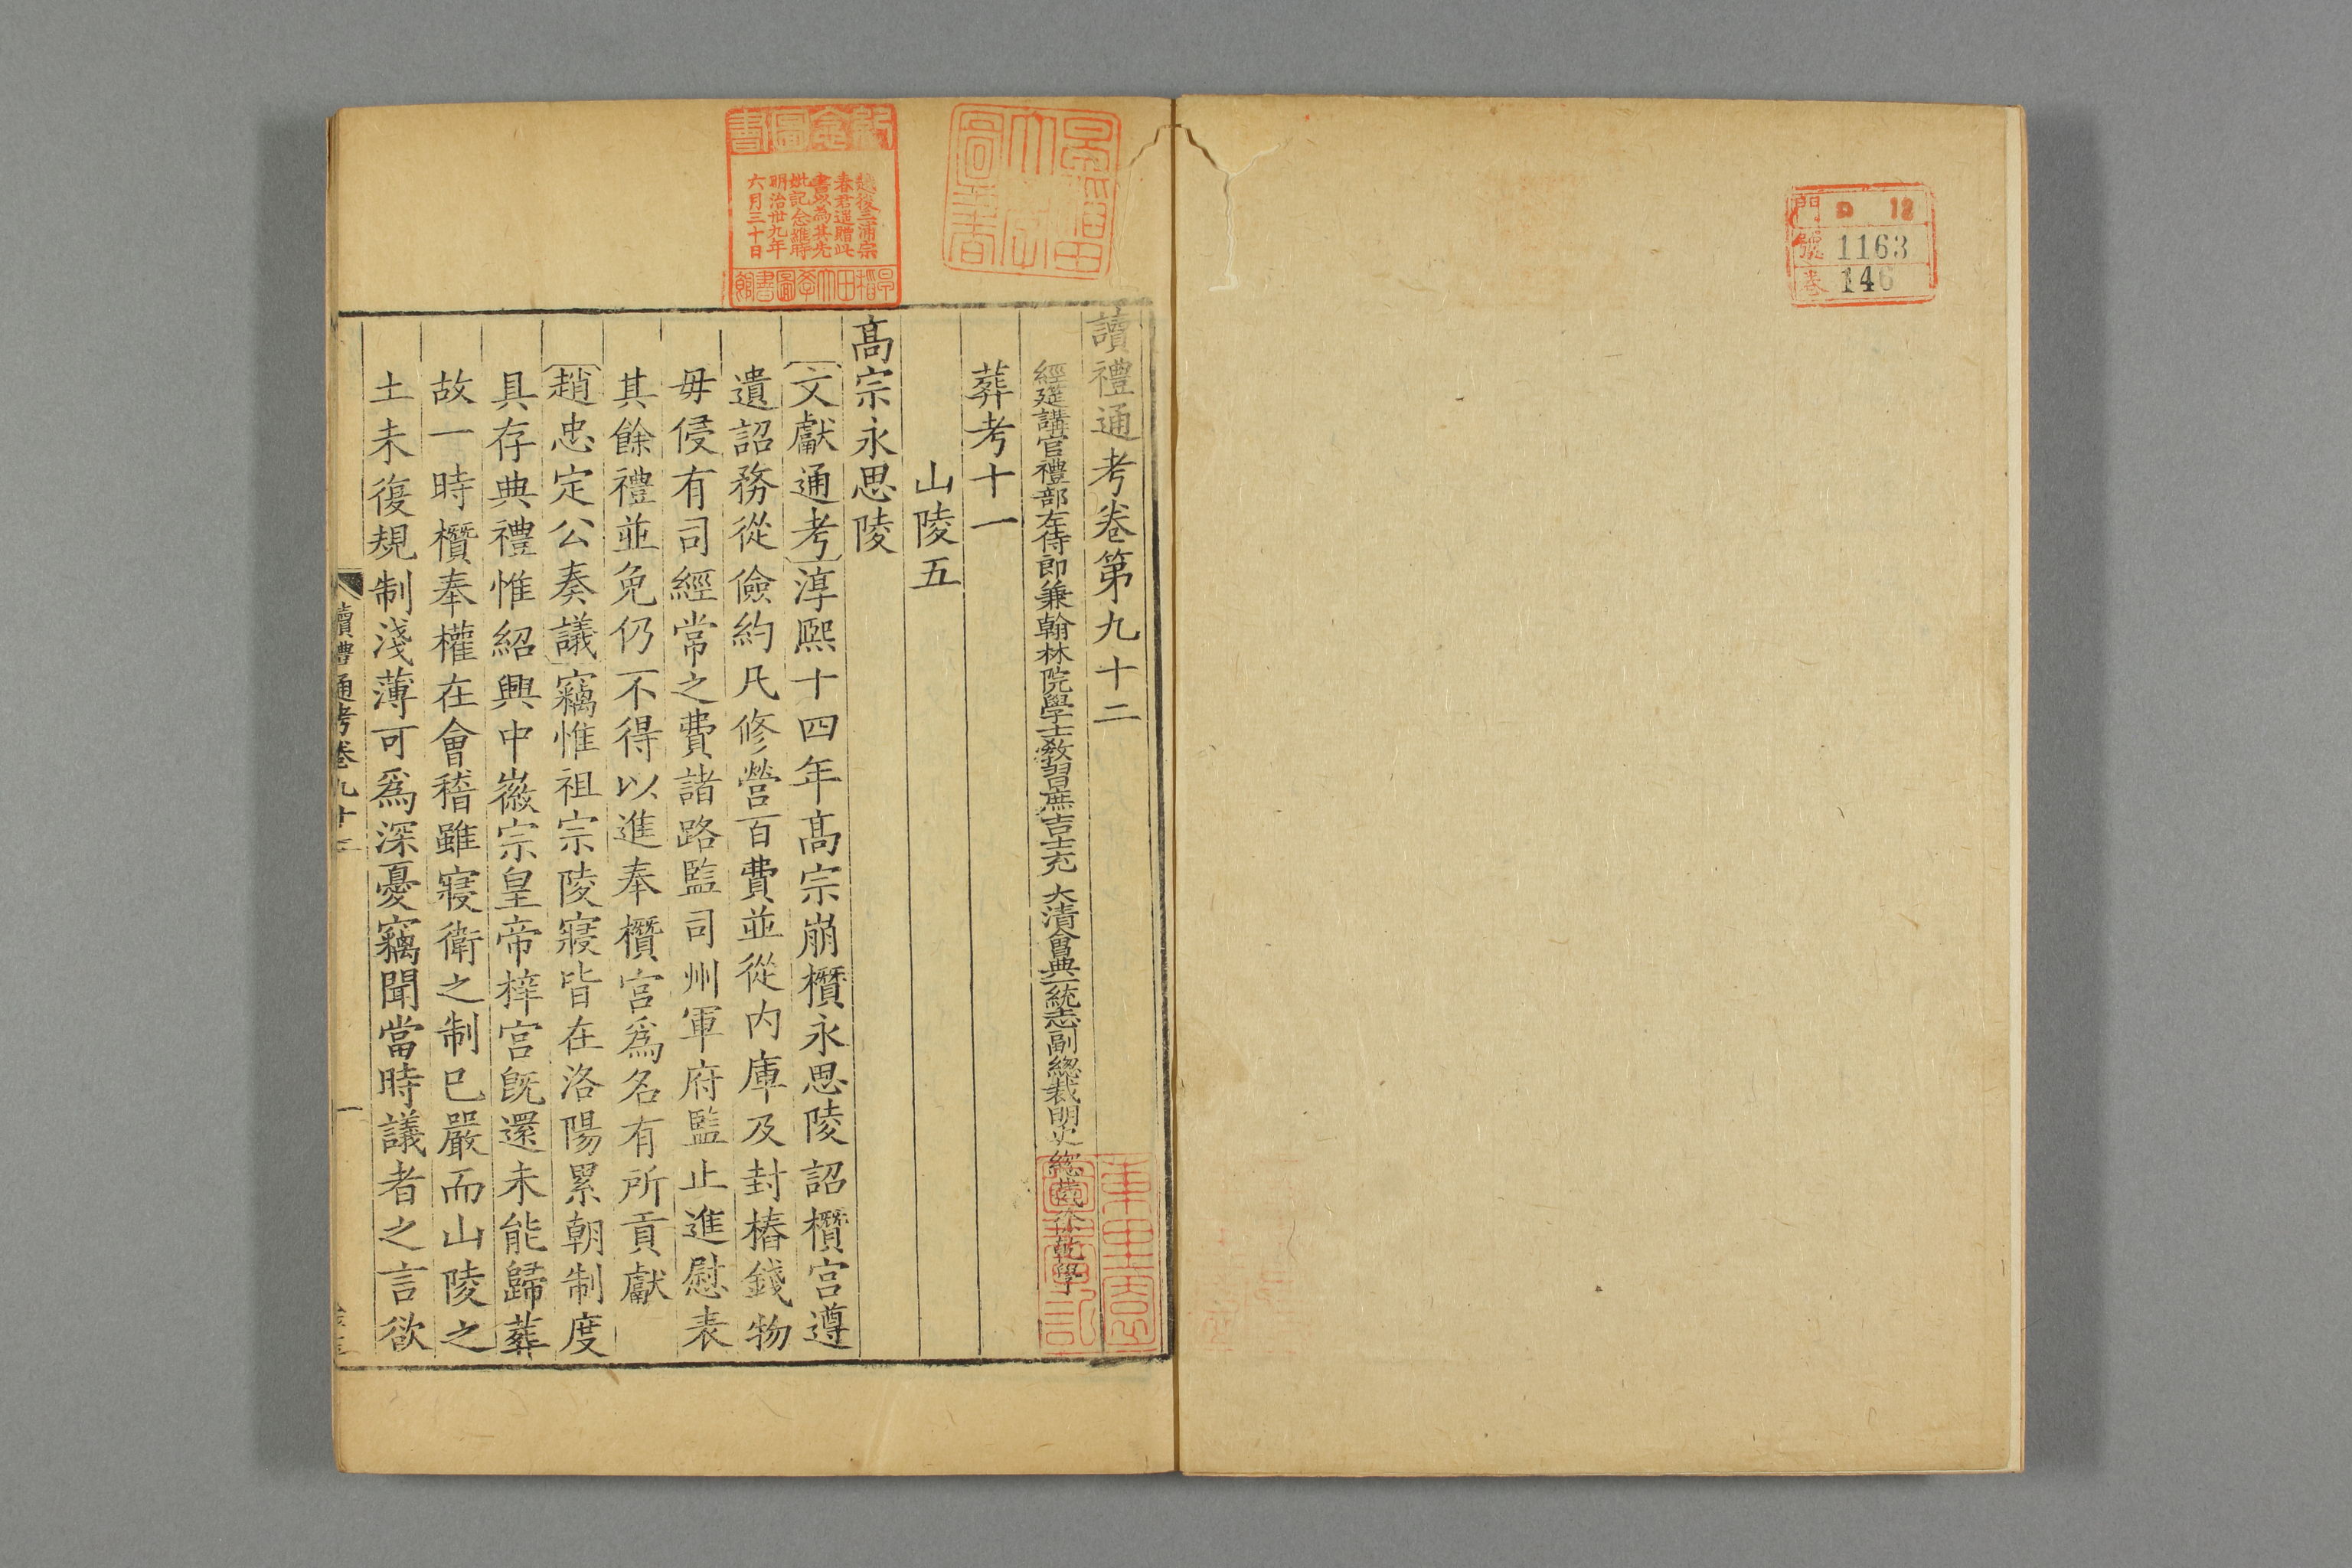 門 D 12
號 1163
卷 146
讀禮通考卷第九十二
經筵講官禮部左侍郎兼翰林院學士教習庶吉士充 大清會典一統志副總裁明史總裁徐乾學
葬考十一
山陵五
高宗永思陵
〔文獻通考〕淳熙十四年高宗崩欑永思陵詔欑宮遵
遺詔務從儉約凡修營百費並從內庫及封樁錢物
毋侵有司經常之費諸路監司州軍府監止進慰表
其餘禮並免仍不得以進奉欑宮爲名有所貢獻
〔趙忠定公奏議〕竊惟祖宗陵寢皆在洛陽累朝制度
具存典禮惟紹興中徽宗皇帝梓宮旣還未能歸葬
故一時欑奉權在會稽雖寢衛之制已嚴而山陵之
土未復規制淺薄可爲深憂竊聞當時議者之言欲
讀禮通考卷九十二
一
紀念圖書
越後三浦宗
春君遥贈此
書以為其先
妣記念維時
明治卅九年
六月三十日
早稻田大學圖書館
早稻田大學圖書